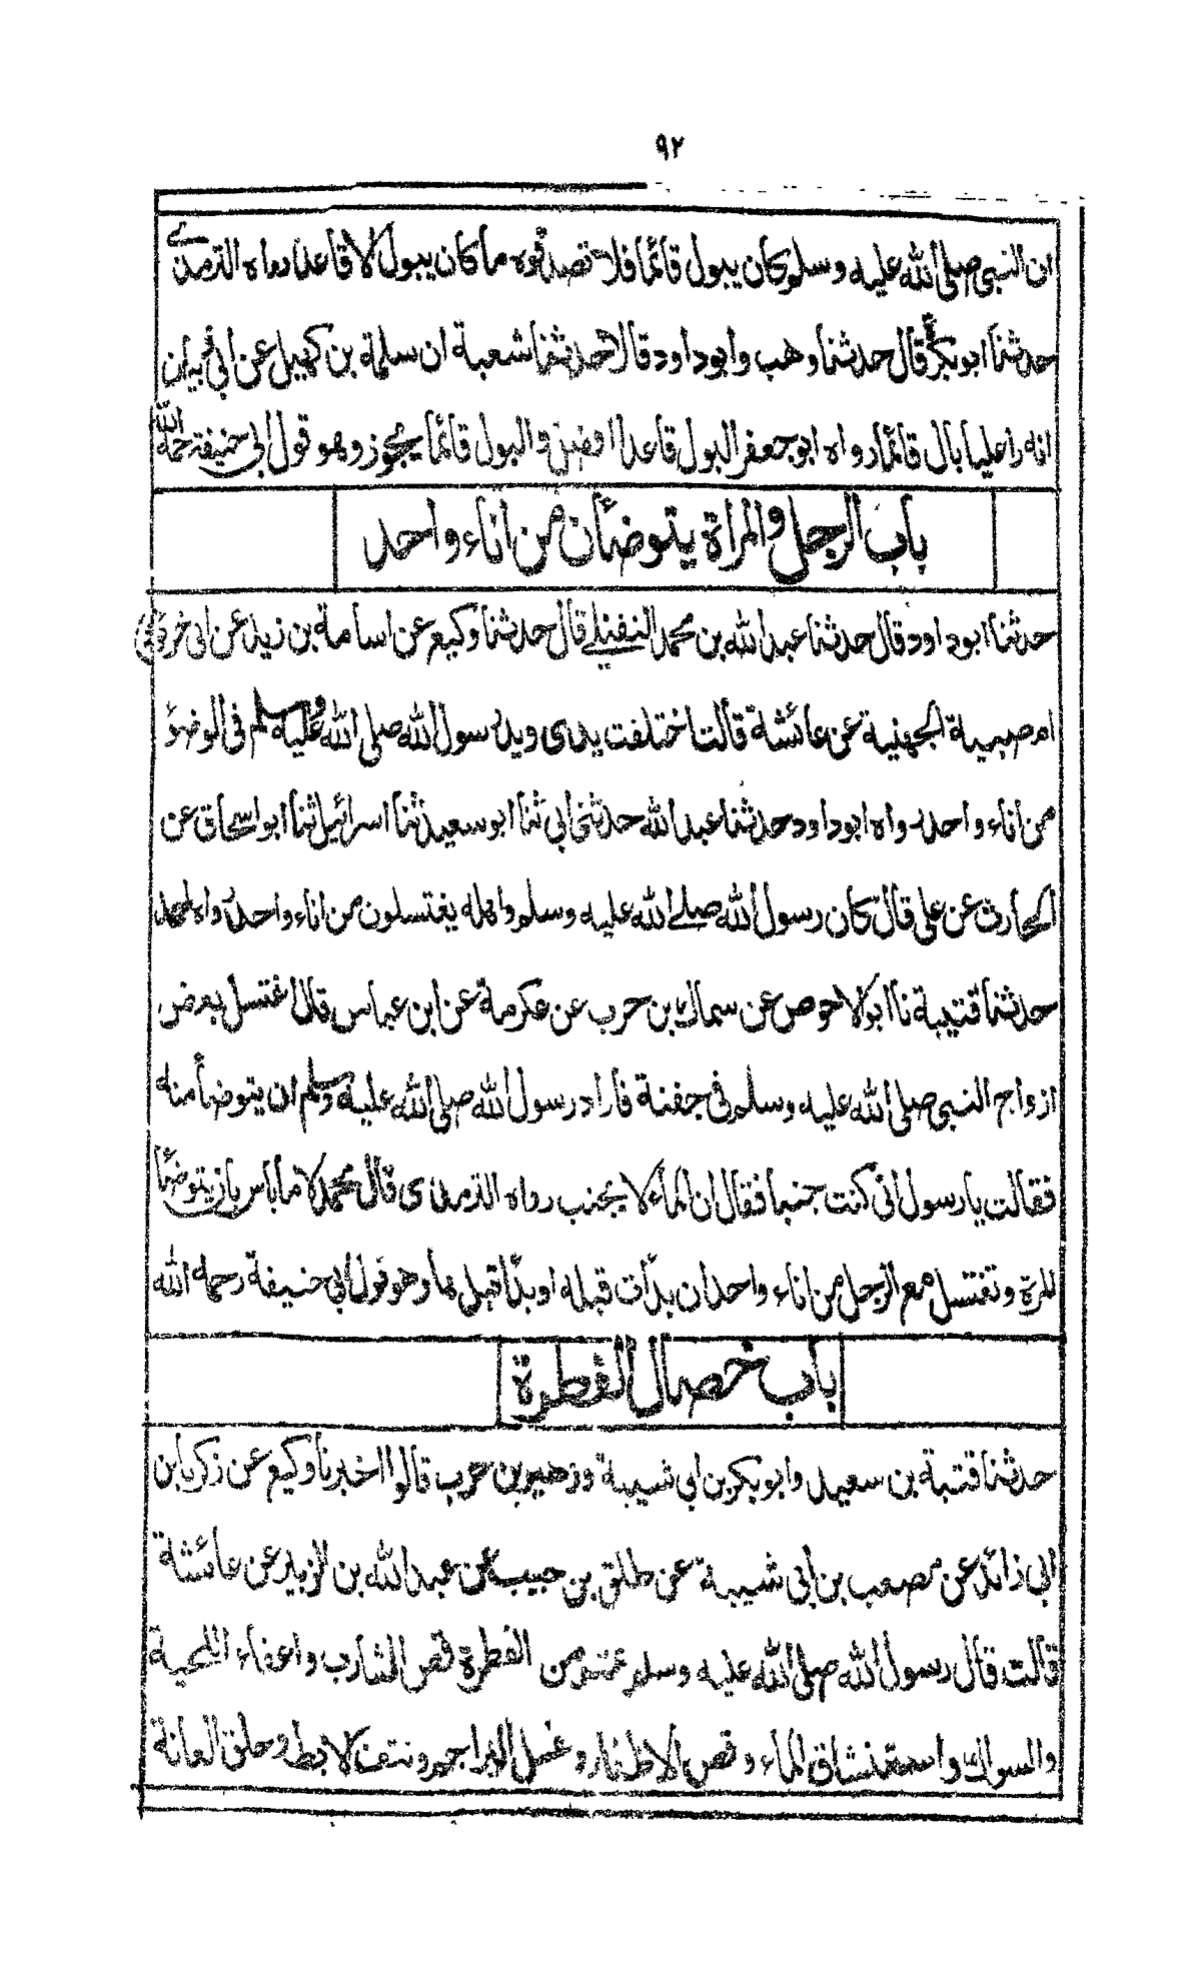 ٩٢
ان النبي صلى الله عليه وسلم كان يبول قائما فلا تصدقوه ما كان يبول الا قاعدا رواه الترمذي
حدثنا ابو بكرة قال حدثنا وهب وابو داود قالا حدثنا شعبة ان سلمة بن كهيل عن ابي ظبيان
انه راى عليا بال قائما رواه ابو جعفر البول قاعدا افضل والبول قائما يجوز وهو قول ابي حنيفة رحمه الله
باب الرجل والمراة يتوضأن من اناء واحد
حدثنا ابو داود قال حدثنا عبد الله بن محمد النفيلي قال حدثنا وكيع عن اسامة بن زيد عن ابن خربوذ عن
ام صبية الجهنية عن عائشة قالت اختلفت يدى ويد رسول الله صلى الله عليه وسلم فى الوضوء
من اناء واحد رواه ابو داود حدثنا عبد الله حدثني ابي ثنا ابو سعيد ثنا اسرائيل ثنا ابو اسحاق عن
الحارث عن علي قال كان رسول الله صلى الله عليه وسلم واهله يغتسلون من اناء واحد رواه احمد
حدثنا قتيبة نا ابو الاحوص عن سماك بن حرب عن عكرمة عن ابن عباس قال اغتسل بعض
ازواج النبي صلى الله عليه وسلم فى جفنة فاراد رسول الله صلى الله عليه وسلم ان يتوضأ منه
فقالت يا رسول انى كنت جنبا فقال ان الماء لا يجنب رواه الترمذى قال محمد لا بأس بان يتوضأ
للمرة وتغتسل مع الرجل من اناء واحد ان بدأت قبله او بدأ قبلها وهو قول ابي حنيفة رحمه الله
باب خصال الفطرة
حدثنا قتبة بن سعيد وابو بكر بن ابي شيبة وزهير بن حرب قالوا اخبرنا وكيع عن زكريا بن
ابي زائد عن مصعب بن ابي شيبة عن طلق بن حبيب عن عبد الله بن الزبير عن عائشة
قالت قال رسول الله صلى الله عليه وسلم عشر من الفطرة قص الشارب واعفاء اللحية
والسواك واستنشاق الماء وقص الاظفار وغسل البراجم ونتف الابط وحلق العانة